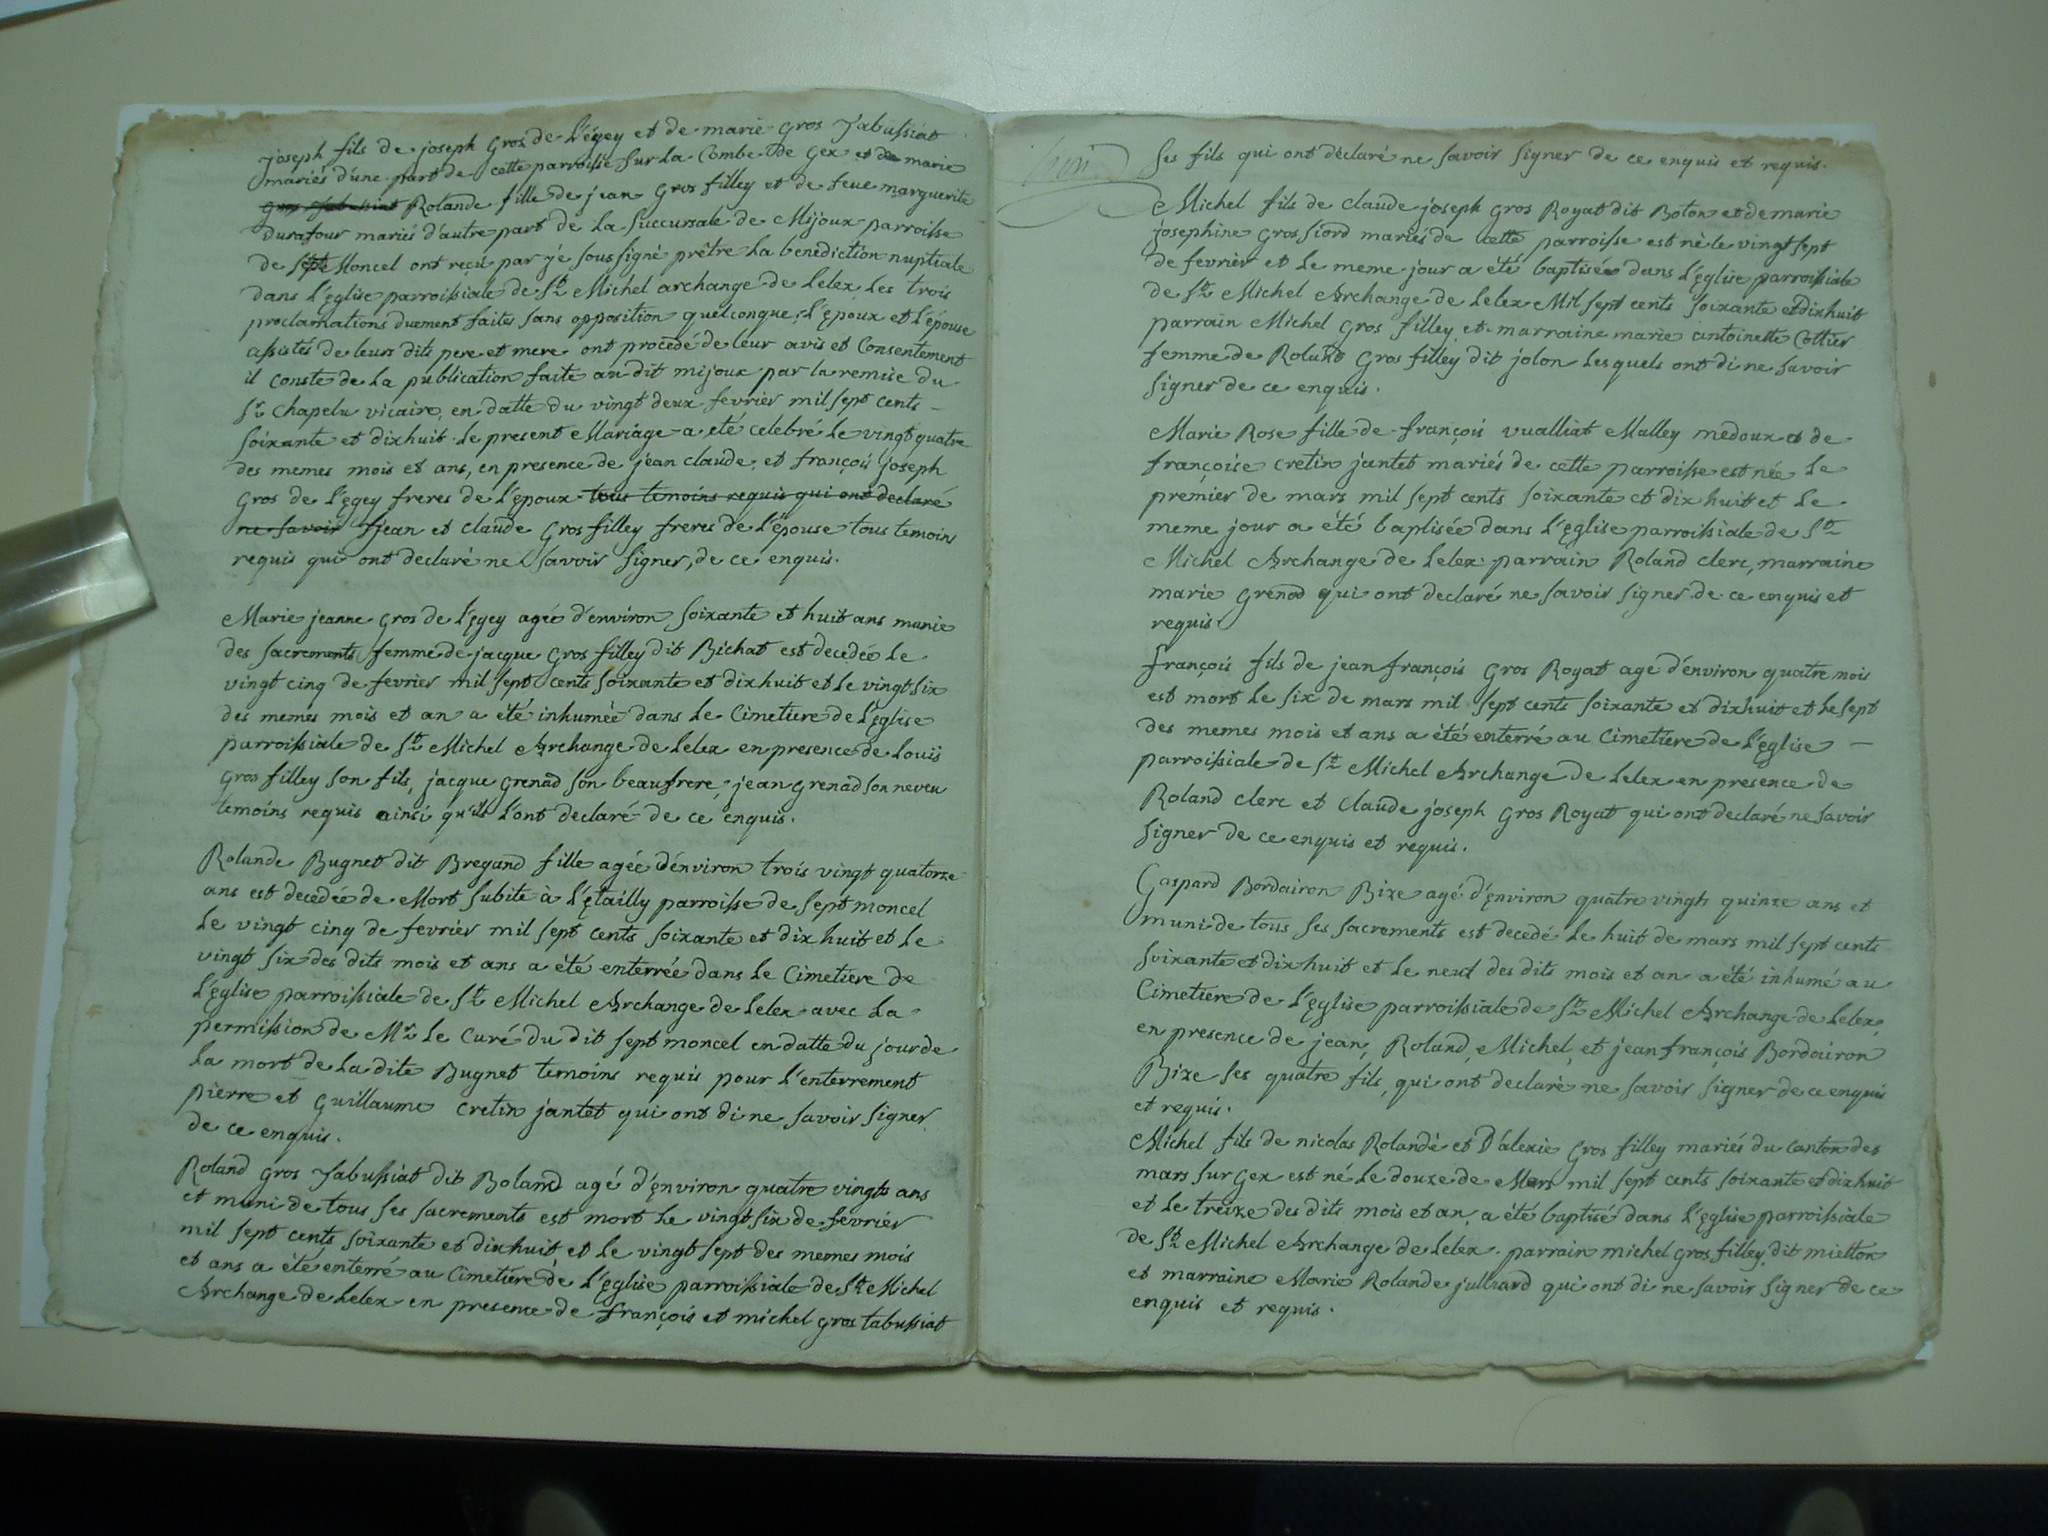 joseph fils de joseph Gros de L'égey et de marie Gros Tabussiat
mariés d'une part de cette parroisse sur la Combe de Gex et de marie
Rolande fille de jean Gros filley et de feue marguerite
Durafour mariés d'autre part de la Succursale de Mijoux parroisse
de Sept Moncel ont reçu par je soussigné prêtre la benediction nuptiale
dans L'eglise parroissiale de St Michel archange de Lelex Les trois
proclamations duement faites sans opposition quelconque, L'époux et L'épouse
assistés de leurs dits pere et mere ont procédé de leur avis et Consentement
il conste de la publication faite au dit mijoux par la remise du
Sr Chapelu vicaire, en datte du vingt deux fevrier mil sept cents
soixante et dixhuit. Le present Mariage a été celebré le vingt quatre
des memes mois et ans, en presence de jean claude, et françois joseph
Gros de L'égey freres de L'époux tous temoins requis qui ont declaré
ne savoir jean et claude Gros filley freres de L'épouse tous temoins
requis qui ont declaré ne savoir signer, de ce enquis.
Marie jeanne Gros de L'égey agée d'environ soixante et huit ans munie
des sacrements femme de jacque Gros filley dit Bichat est decedée le
vingt cinq de fevrier mil sept cents soixante et dixhuit et le vingt six
des memes mois et an a été inhumée dans le Cimetiere de L'église
parroissiale de St Michel Archange de Lelex en presence de Louis
Gros filley son fils, jacque Grenad son beaufrere, jean grenad son neveu
temoins requis ainsi qu'ils l'ont declaré de ce enquis.
Rolande Bugnet dit Bregand fille agée d'environ trois vingt quatorze
ans est decedée de Mort subite à L'étailly parroisse de Sept moncel
le vingt cinq de fevrier mil sept cents soixante et dix huit et le
vingt six des dits mois et ans a été enterrée dans le Cimetiere de
L'église parroissiale de St Michel Archange de Lelex avec la
permission de Mr le Curé du dit Sept moncel en datte du jour de
la mort de la dite Bugnet temoins requis pour l'enterrement
pierre et Guillaume cretin jantet qui ont di ne savoir signer
de ce enquis.
Roland Gros Tabussiat dit Boland agé d'environ quatre vingts ans
et muni de tous ses sacrements est mort le vingt six de fevrier
mil sept cents soixante et dixhuit et le vingt sept des memes mois
et ans a été enterré au Cimetiere de L'église parroissiale de St Michel
Archange de Lelex en presence de françois et michel gros tabussiat
ses fils qui ont déclaré ne savoir signer de ce enquis et requis.
Michel fils de claude joseph Gros Royat dit Boton et de marie
josephine Gros siord mariés de cette parroisse est né le vingt sept
de fevrier et le meme jour a été baptisée dans L'église parroissiale
de St Michel Archange de Lelex Mil sept cents soixante et dixhuit
parrain Michel Gros filley et marraine marie antoinette Cottier
femme de Roland Gros filley dit jolon Lesquels ont di ne savoir
signer de ce enquis.
Marie Rose fille de françois vualliat Malley medoux et de
françoise cretin jantet mariés de cette parroisse est née le
premier de mars mil sept cents soixante et dix huit et le
meme jour a été baptisée dans l'église parroissiale de St
Michel Archange de Lelex parrain Roland clerc, marraine
marie Grenod qui ont declaré ne savoir signer de ce enquis et
requis.
françois fils de jean françois Gros Royat agé d'environ quatre mois
est mort le six de mars mil sept cents soixante et dixhuit et le sept
des memes mois et ans a été enterré au Cimetiere de L'église
parroissiale de St Michel Archange de Lelex en presence de
Roland clerc et Claude joseph Gros Royat qui ont declaré ne savoir
signer de ce enquis et requis.
Gaspard Bordairon Bize agé d'environ quatre vingts quinze ans et
muni de tous ses sacrements est decedé le huit de mars mil sept cents
soixante et dixhuit et le neuf des dits mois et an a été inhumé au
Cimetiere de L'église parroissiale de St Michel Archange de Lelex,
en presence de jean, Roland, Michel, et jean françois Bordairon
Bize ses quatre fils, qui ont declaré ne savoir signer de ce enquis
et requis.
Michel fils de nicolas Rolandé et D'alexie Gros filley mariés du canton des
mars sur Gex est né le douze de Mars mil sept cents soixante et dixhuit
et le treize des dits mois et an a été baptisé dans l'église parroissiale
de St Michel Archange de Lelex. parrain michel gros filley dit mietton
et marraine Marie Rolande julliard qui ont di ne savoir signer de ce
enquis et requis.